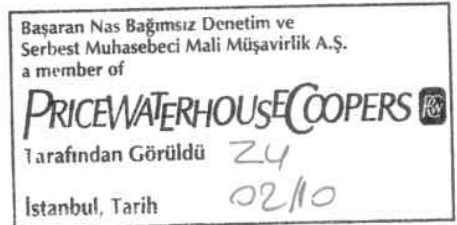 Başaran Nas Bağımsız Denetim ve
Serbest Muhasebeci Mali Müşavirlik A.Ş.
a member of
PRICEWATERHOUSECOOPERS
Tarafından Görüldü
İstanbul, Tarih 02/10